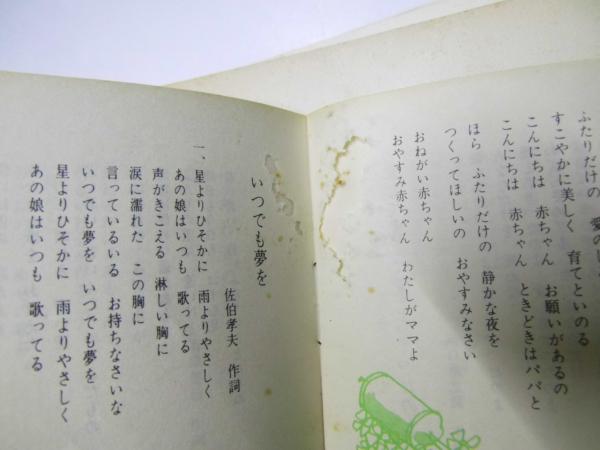 ふたりだけの 愛の
すこやかに美しく 育てといのる
こんにちは 赤ちゃん お願いがあるの
こんにちは 赤ちゃん ときどきはパパと
ほら ふたりだけの 静かな夜を
つくってほしいの おやすみなさい
おねがい赤ちゃん
おやすみ赤ちゃん わたしがママよ
いつでも夢を
佐伯孝夫 作詞
一、星よりひそかに 雨よりやさしく
あの娘はいつも 歌ってる
声がきこえる 淋しい胸に
涙に濡れた この胸に
言っているいる お持ちなさいな
いつでも夢を いつでも夢を
星よりひそかに 雨よりやさしく
あの娘はいつも 歌ってる